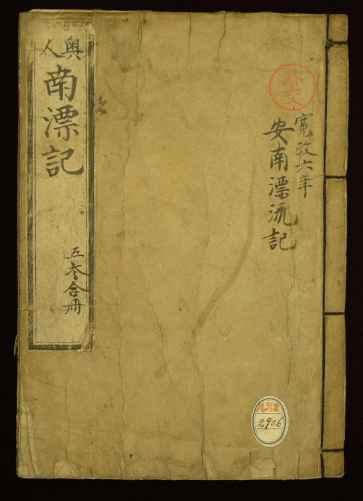 外交
寛政六年
安南漂流記
奥人
南漂記
五巻合册
2906